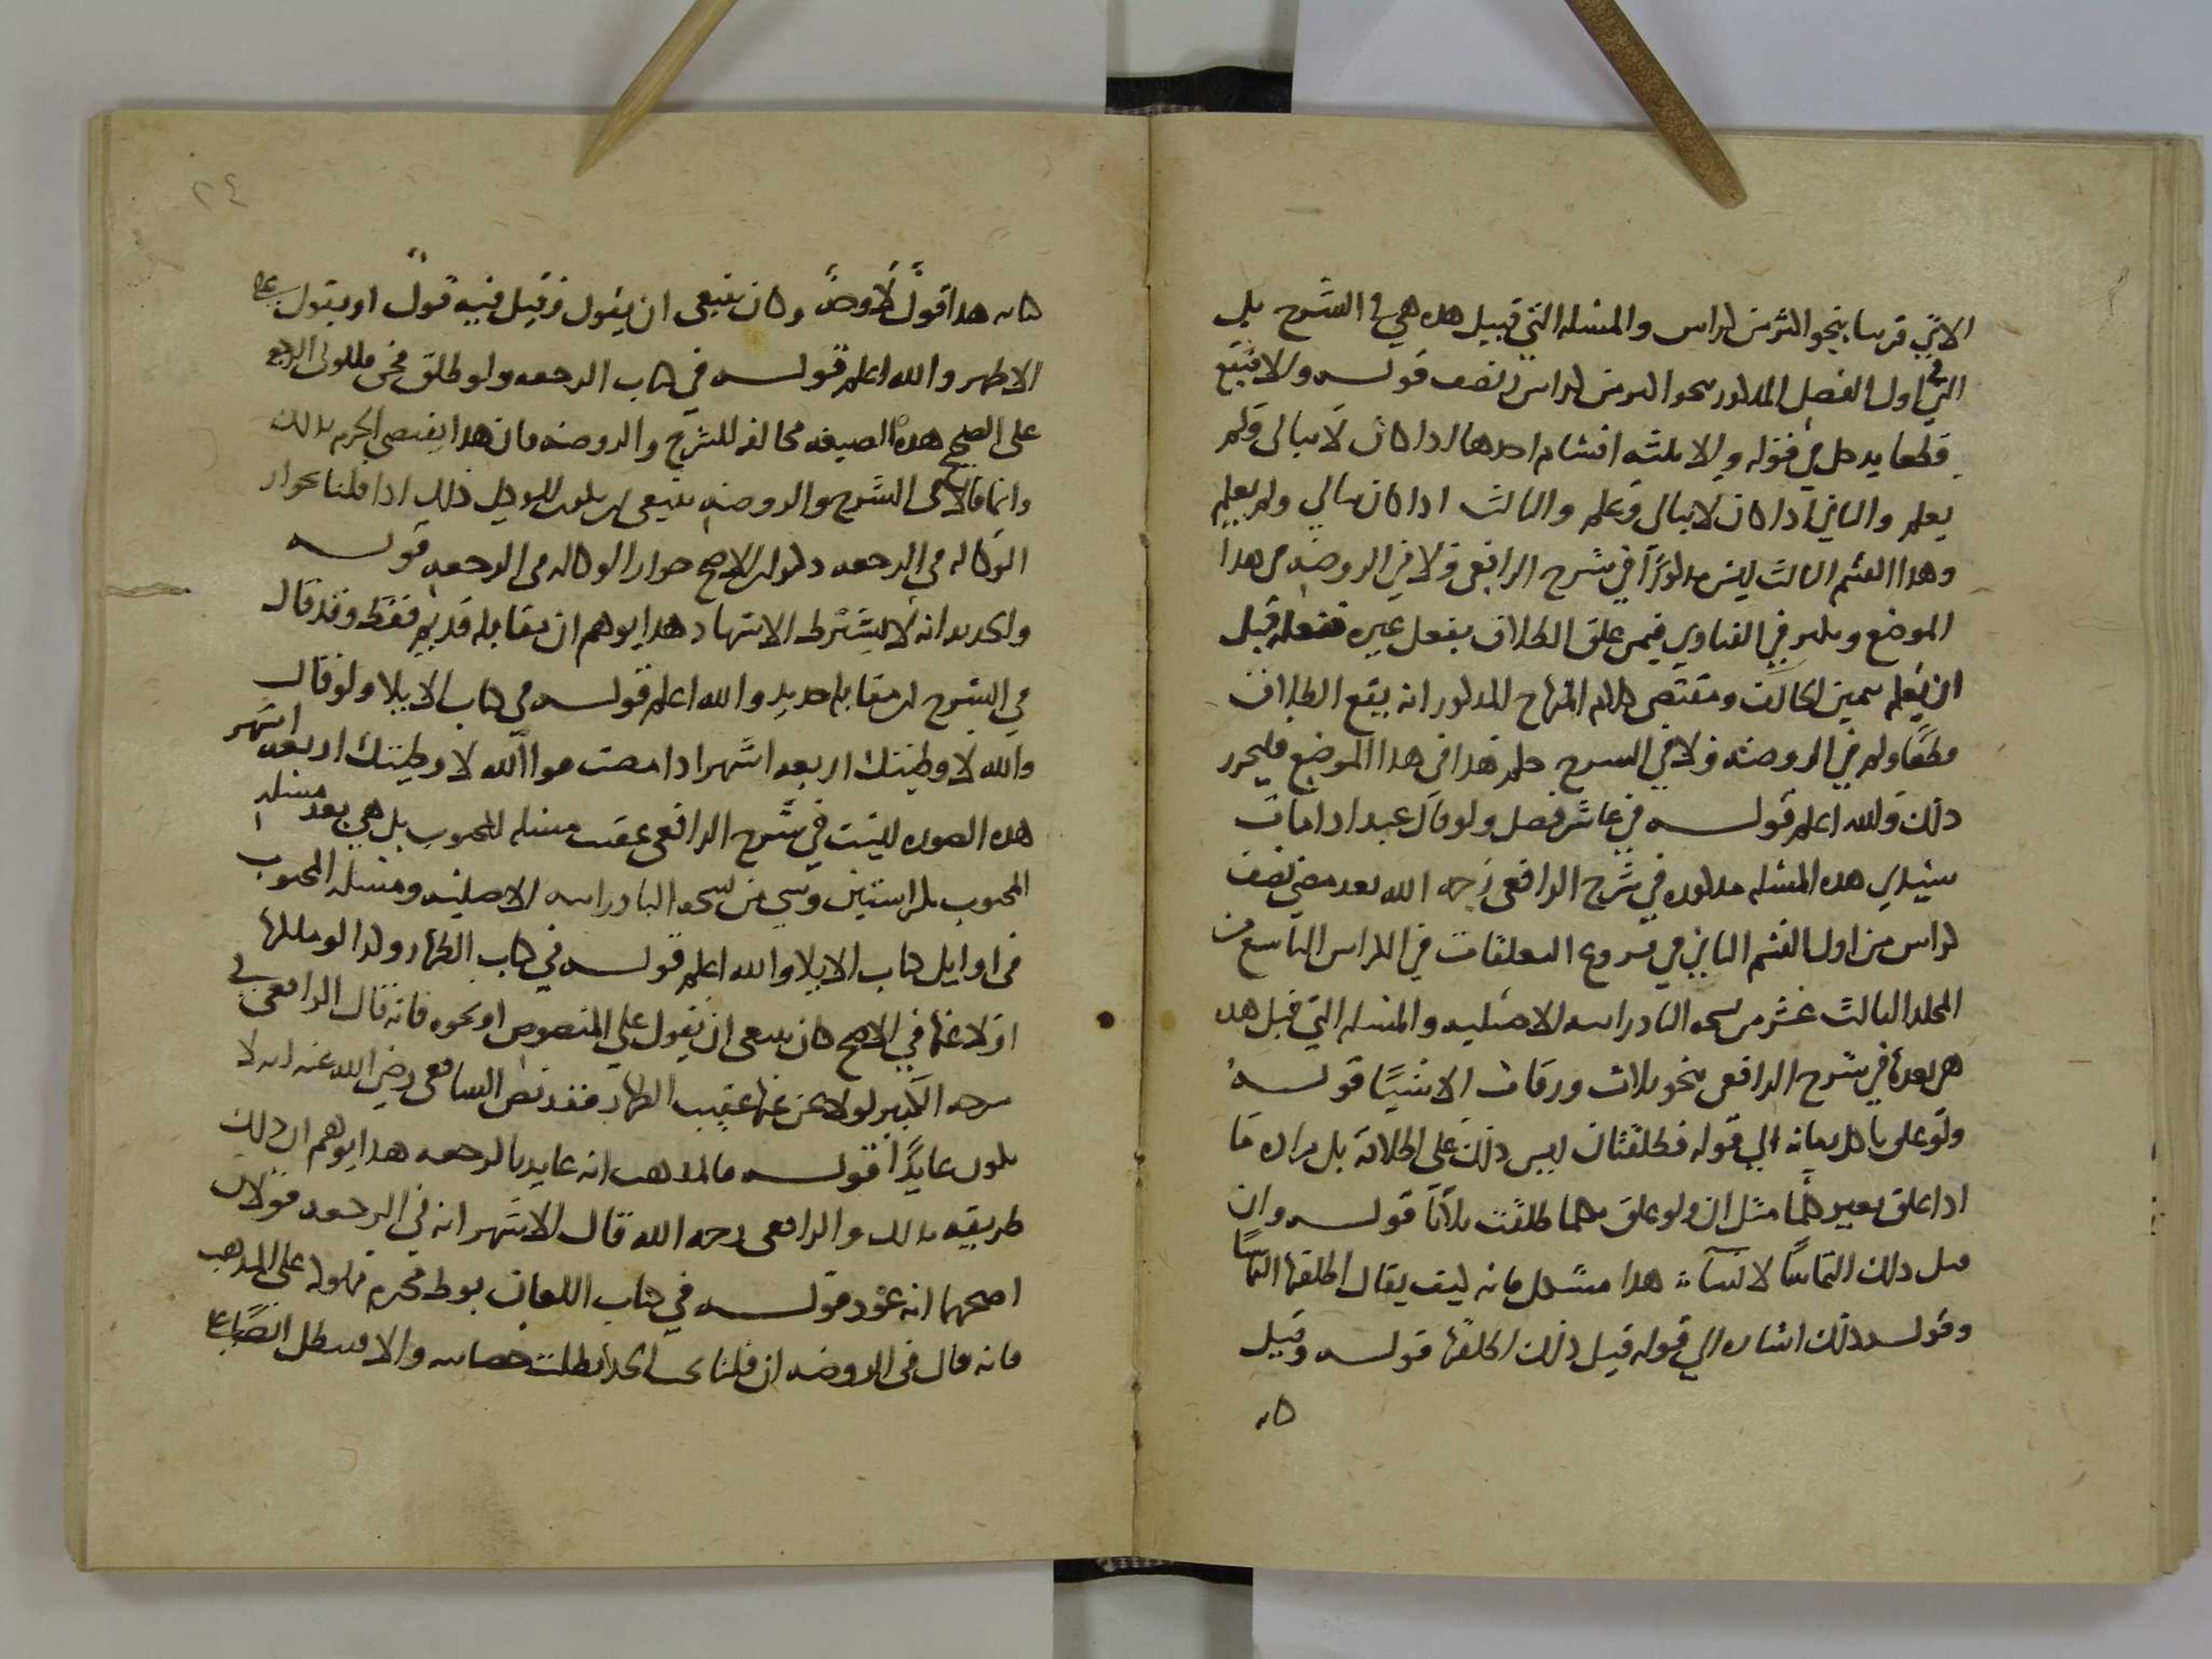 الاتي قريبا بنحو اكثر من كراس والمسئله التي قبيل هده هي في الشرح بل
التي في اول الفصل المدكور بنحو اكثر من كراس ونصف قوله والا فيقع
قطعا يدخل في قوله والا ثلثه اقسام احدها اذا كان لا يبالي ولم
يعلم والثاني اذا كان لا يبالي وعلم والثالث اذا كان يبالي ولم يعلم
وهدا القسم الثالث ليس مدكورا في شرح الرافعي ولا في الروضه في هدا
الموضع وذكر في الفتاوي فيمن علق الطلاق بفعل غيره ففعله قبل
ان يعلم يمين الحالف ومقتضى كلام المنهاج المدكور انه يقع الطلاق
قطعا ولم في الروضه ولا في الشرح حكم هدا في هدا الموضع فليحرر
دلك والله اعلم قوله في عاشر فصل ولو قال عبد اذا مات
سيدي هده المسئله مدكوره في شرح الرافعي رحمه الله بعد مضي نصف
كراس من اول القسم الثاني في فروع التعليقات في الكراس التاسع من
المجلد الثالث عشر من نسخه البادرائيه الاصليه والمسئله التي قبل هده
هي بعدها في شرح الرافعي بنحو ثلاث ورقات الا شيئا قوله
ولو علق باكل رمانه الى قوله فطلقتان ليس دلك على اطلاقه بل مراده ما
اذا علق بغير كلما مثل ان ولو علق بكلما طلقت ثلاثا قوله وان
قيل دلك التماسا لانشاء هدا مشكل فانه كيف يقال اطلقتها التماسا
وقوله ذلك اشاره الى قوله قيل ذلك اطلقتها قوله وقيل
كنا
٢٤
كنايه هدا قول لا وجه وكان ينبغي ان يقول وقيل فيه قول او يقول على
الاظهر والله اعلم قوله في كتاب الرجعه ولو طلق فجن فللولي الرجعه
على الصحيح هذه الصيغه مخالفه للشرح والروضه فان هدا يقتضي الجزم بدلك
وانما قالا في الشرح والروضه ينبغي ان يكون للولي ذلك اذا قلنا بجواز
الوكاله في الرجعه والاصح جواز الوكاله في الرجعه قوله
والجديد انه لا يشترط الاشهاد هدا يوهم ان مقابله قديم فقط وقد قال
في الشرح ان مقابله جديد والله اعلم قوله في كتاب الايلا ولو قال
والله لا وطئتك اربعه اشهر اذا مضت فوالله لا وطئتك اربعه اشهر
هده الصوره ليست في شرح الرافعي عقب مسئله المجبوب بل هي بعد مسئله
المجبوب بكراستين وشي من نسخه البادرائيه الاصليه ومسئله المجبوب
في اوايل كتاب الايلا والله اعلم قوله في كتاب الظهار وكذا لو ملكها
او لاعنها في الاصح كان ينبغي ان يقول على المنصوص او نحوه فانه قال الرافعي في
شرحه الكبير لو لاعن عنها عقيب الظهار فقد نص الشافعي رضي الله عنه انه لا
يكون عايدا قوله فالمدهب انه عايد بالرجعه هدا يوهم ان ذلك
طريقه كدلك والرافعي رحمه الله قال الاشهر انه في الرجعه قولان
اصحهما انه عود قوله في كتاب اللعان بوطء محرم مملوكه على المدهب
فانه قال في الروضه ان قلنا يجب الحد بطلت حصانته والا فتبطل ايضا على